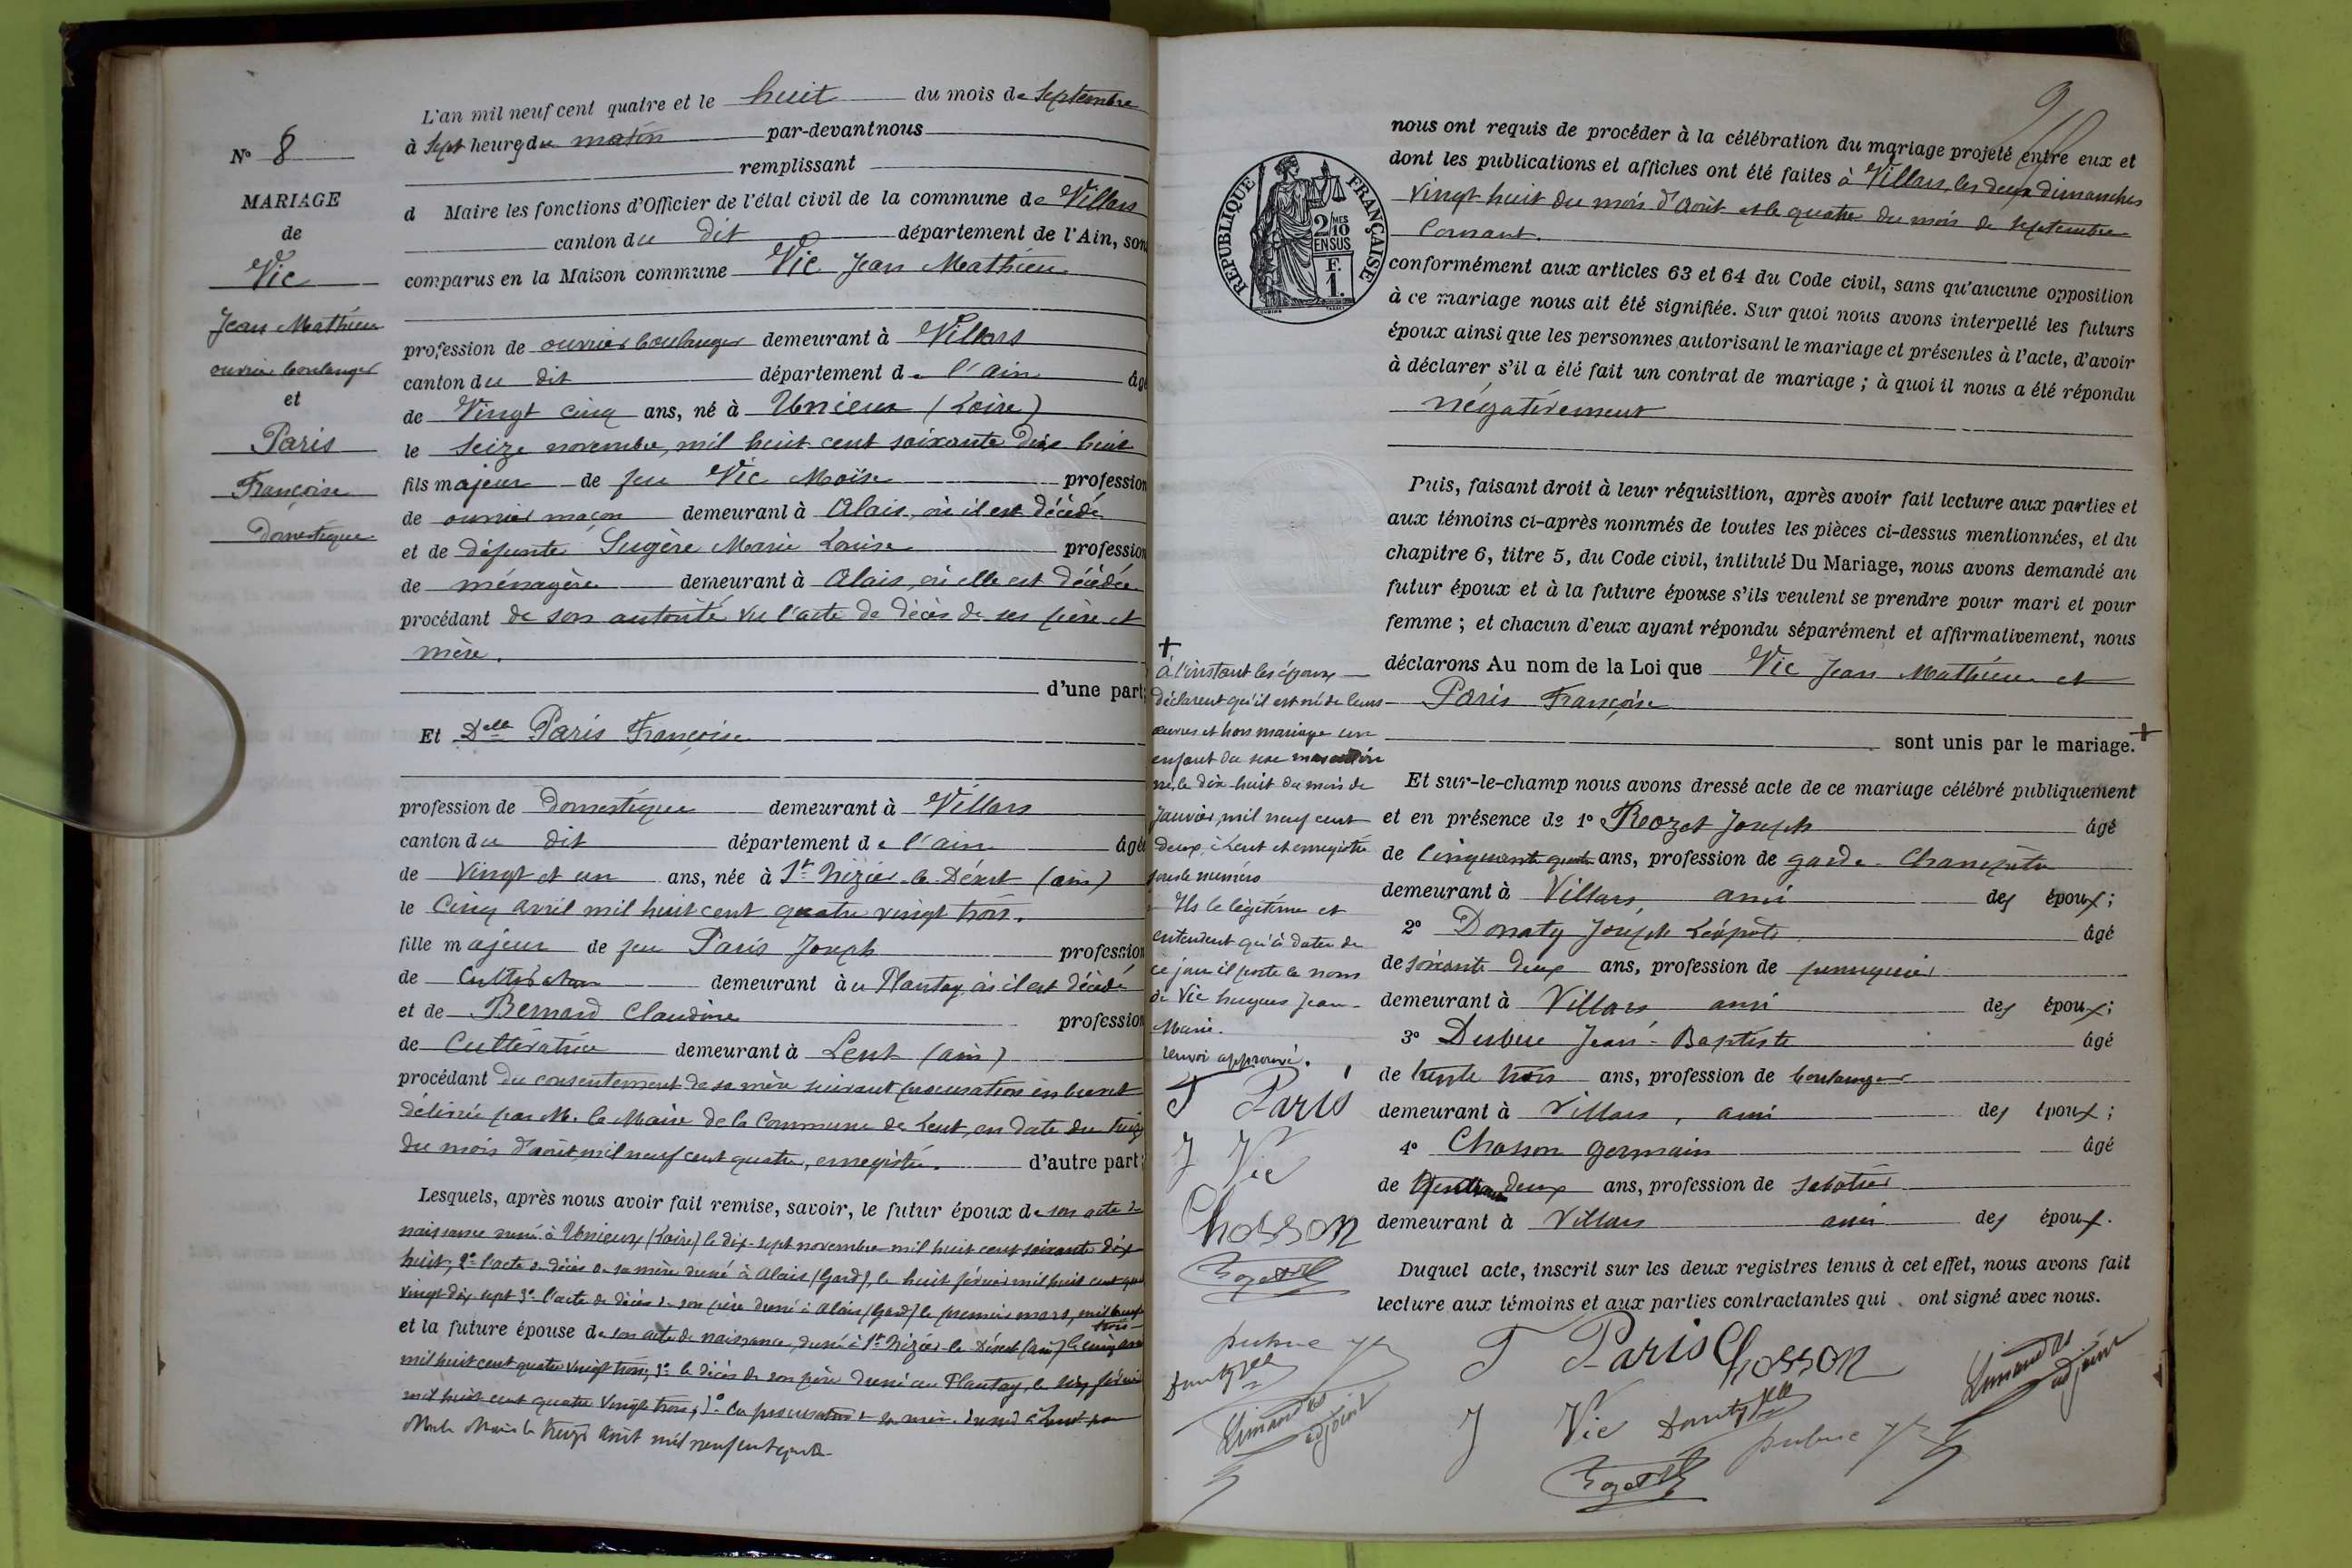 N° 8
MARIAGE
de
Vic
Jean Mathieu
ouvrier boulanger
et
Paris
Françoise
Domestique
L'an mil neuf cent quatre et le huit du mois de Septembre
à Sept heures du matin par-devant nous
remplissant
d Maire les fonctions d'Officier de l'état civil de la commune de Villars
canton du dit département de l'Ain, son
comparus en la Maison commune Vic Jean Mathieu
profession de ouvrier boulanger demeurant à Villars
canton du dit département de l'ain âgé
de Vingt cinq ans, né à Unieux (Loire)
le Seize novembre, mil huit cent soixante dix huit
fils majeur de feu Vic Moïse profession
de ouvrier maçon demeurant à Alais, où il est décédé
et de défunte Sugère Marie Louise profession
de ménagère demeurant à Alais, où elle est décédée
procédant de son autorité vu l'acte de décès de ses père et
mère.
d'une part;
Et Delle Paris Françoise
profession de Domestique demeurant à Villars
canton du dit département de l'ain âgée
de Vingt et un ans, née à St Nizier-le-Désert (ain)
le Cinq avril mil huit cent quatre vingt trois.
fille majeur de feu Paris Joseph profession
de Cultivateur demeurant au Plantay, où il est décédé
et de Bernard Claudine profession
de Cultivatrice demeurant à Lent (ain)
procédant du consentement de sa mère suivant procuration en brevet
délivrée par M. le Maire de la Commune de Lent, en date du treize
du mois d'août mil neuf cent quatre, enregistré. d'autre part;
Lesquels, après nous avoir fait remise, savoir, le futur époux de son acte de
naissance dressé à Unieux (Loire) le dix-sept novembre mil huit cent soixante dix
huit, 2° l'acte de décès de sa mère dressé à Alais (Gard), le huit février mil huit cent quatre
vingt dix sept 3° l'acte de décès de son père dressé à Alais (Gard) le premier mars, mil neuf
trois
et la future épouse de son acte de naissance, dressé à St Nizier le Désert (ain) le cinq avril
mil huit cent quatre vingt trois, 2° le décès de son père dressé au Plantay, le février
mil huit cent quatre vingt trois, 3° la procuration de sa mère dressé à Lent par
Mr le Maire le treize Août mil neuf cent quatre
9
RÉPUBLIQUE FRANÇAISE
2/10 MES
EN SUS
F.
1.
nous ont requis de procéder à la célébration du mariage projeté entre eux et
dont les publications et affiches ont été faites à Villars, les deux dimanches
vingt huit du mois d'Août et le quatre du mois de septembre
Courant.
conformément aux articles 63 et 64 du Code civil, sans qu'aucune opposition
à ce mariage nous ait été signifiée. Sur quoi nous avons interpellé les futurs
époux ainsi que les personnes autorisant le mariage et présentes à l'acte, d'avoir
à déclarer s'il a été fait un contrat de mariage ; à quoi il nous a été répondu
négativement
Puis, faisant droit à leur réquisition, après avoir fait lecture aux parties et
aux témoins ci-après nommés de toutes les pièces ci-dessus mentionnées, et du
chapitre 6, titre 5, du Code civil, intitulé Du Mariage, nous avons demandé au
futur époux et à la future épouse s'ils veulent se prendre pour mari et pour
femme ; et chacun d'eux ayant répondu séparément et affirmativement, nous
déclarons Au nom de la Loi que Vic Jean Mathieu et
Paris Françoise
sont unis par le mariage. +
Et sur-le-champ nous avons dressé acte de ce mariage célébré publiquement
et en présence de 1° Rozet Joseph âgé
de Cinquante quatre ans, profession de garde-Champêtre
demeurant à Villars, ami des époux ;
2° Donaty Joseph Léopold âgé
de soixante deux ans, profession de perruquier
demeurant à Villars ami des époux ;
3° Dubuc Jean-Baptiste âgé
de trente trois ans, profession de boulanger
demeurant à Villars, ami des époux ;
4° Chosson Germain âgé
de deux ans, profession de sabotier
demeurant à Villars ami des époux.
Duquel acte, inscrit sur les deux registres tenus à cet effet, nous avons fait
lecture aux témoins et aux parties contractantes qui ont signé avec nous.
F Paris Chosson
J Vic Donaty
Limandas adjoint
Dubuc
Rozet
+
à l'instant les époux
déclarent qu'il est né de leurs
œuvres et hors mariage un
enfant du sexe masculin
né, le dix-huit du mois de
Janvier, mil neuf cent
deux, à Lent et enregistré
sous le numéro
Ils le légitime et
entendent qu'à dater de
ce jour il porte le nom
de Vic hugues Jean-
Marie.
renvoi approuvé.
F Paris
J Vic
Chosson
Rozet
Dubuc
Donaty
Limandas
adjoint